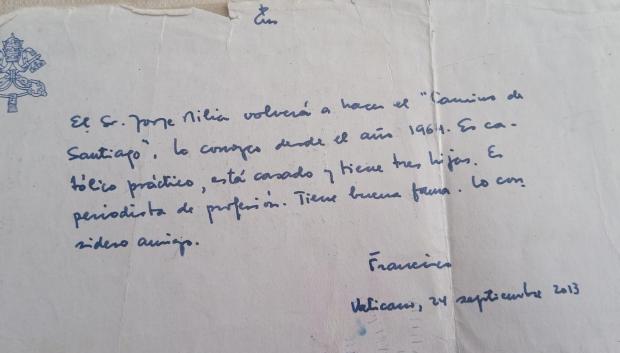 El Sr. Jorge Milia volverá a hacer el "Camino de
Santiago". Lo conozco desde el año 1964. Es ca-
tólico práctico, está casado y tiene tres hijas. Es
periodista de profesión. Tiene buena fama. Lo con-
sidero amigo.
Francisco
Vaticano, 24 septiembre 2013